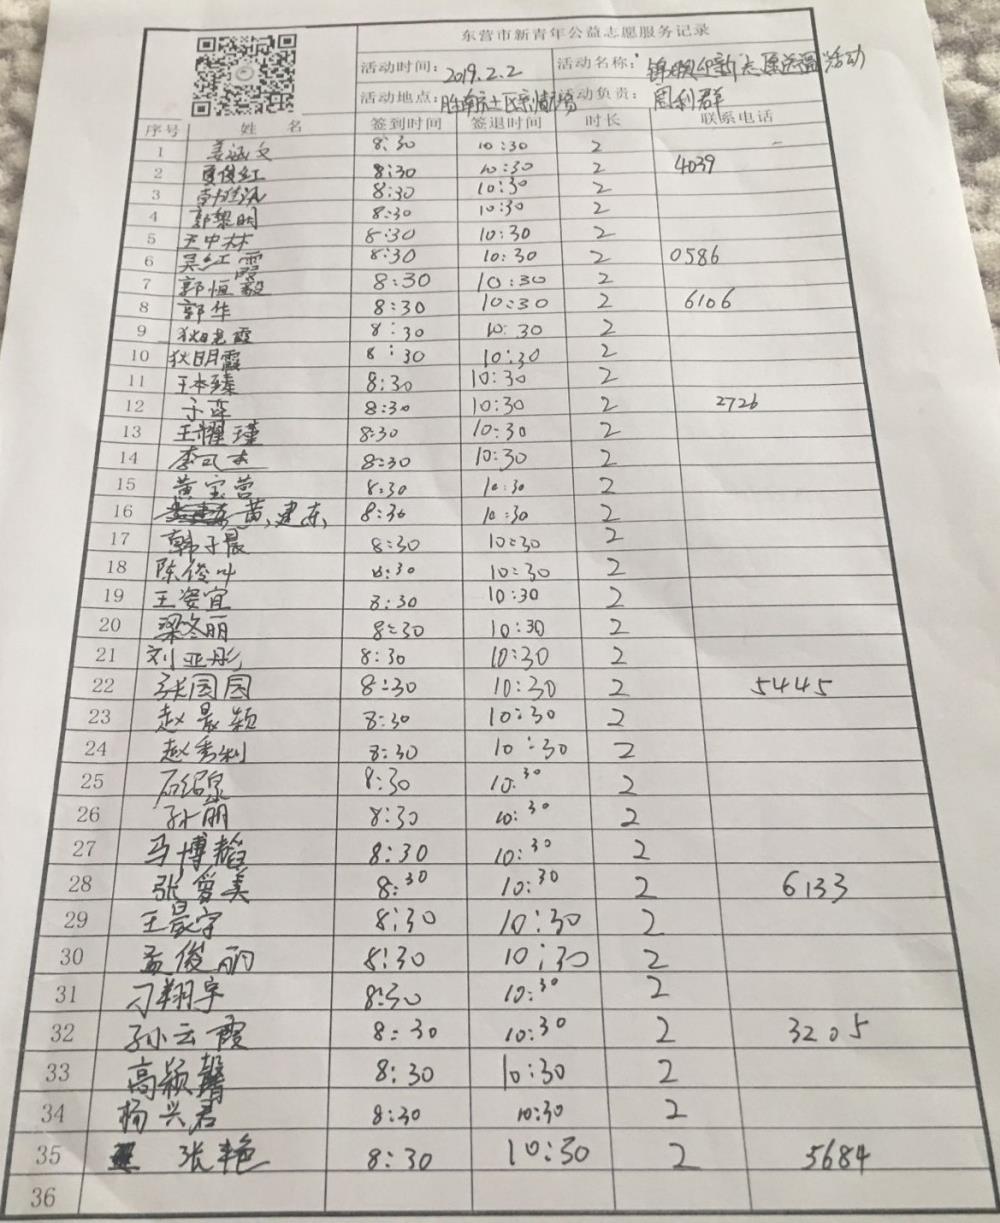 东营市新青年公益志愿服务记录
活动时间: 2019.2.2 活动名称:
活动地点: 活动负责: 周利群
序号 姓 名 签到时间 签退时间 时长 联系电话
1 姜涵文 8:30 10:30 2
2 夏俊红 8:30 10:30 2 4039
3 8:30 10:30 2
4 郭黎明 8:30 10:30 2
5 王中林 8:30 10:30 2
6 吴红霞 8:30 10:30 2 0586
7 郭恒毅 8:30 10:30 2
8 郭华 8:30 10:30 2 6106
9 8:30 10:30 2
10 狄明霞 8:30 10:30 2
11 王本臻 8:30 10:30 2
12 于萍 8:30 10:30 2 2726
13 王耀瑾 8:30 10:30 2
14 8:30 10:30 2
15 黄宝营 8:30 10:30 2
16 黄建东 8:30 10:30 2
17 韩子晨 8:30 10:30 2
18 陈俊叶 8:30 10:30 2
19 王姿宜 8:30 10:30 2
20 梁冬丽 8:30 10:30 2
21 刘亚彤 8:30 10:30 2
22 张园园 8:30 10:30 2 5445
23 赵晨颖 8:30 10:30 2
24 赵秀利 8:30 10:30 2
25 石绍泉 8:30 10:30 2
26 孙丽 8:30 10:30 2
27 马博韬 8:30 10:30 2
28 张爱美 8:30 10:30 2 6133
29 王晨宇 8:30 10:30 2
30 孟俊丽 8:30 10:30 2
31 刁翔宇 8:30 10:30 2
32 孙云霞 8:30 10:30 2 3205
33 高颖馨 8:30 10:30 2
34 杨兴君 8:30 10:30 2
35 张艳 8:30 10:30 2 5684
36